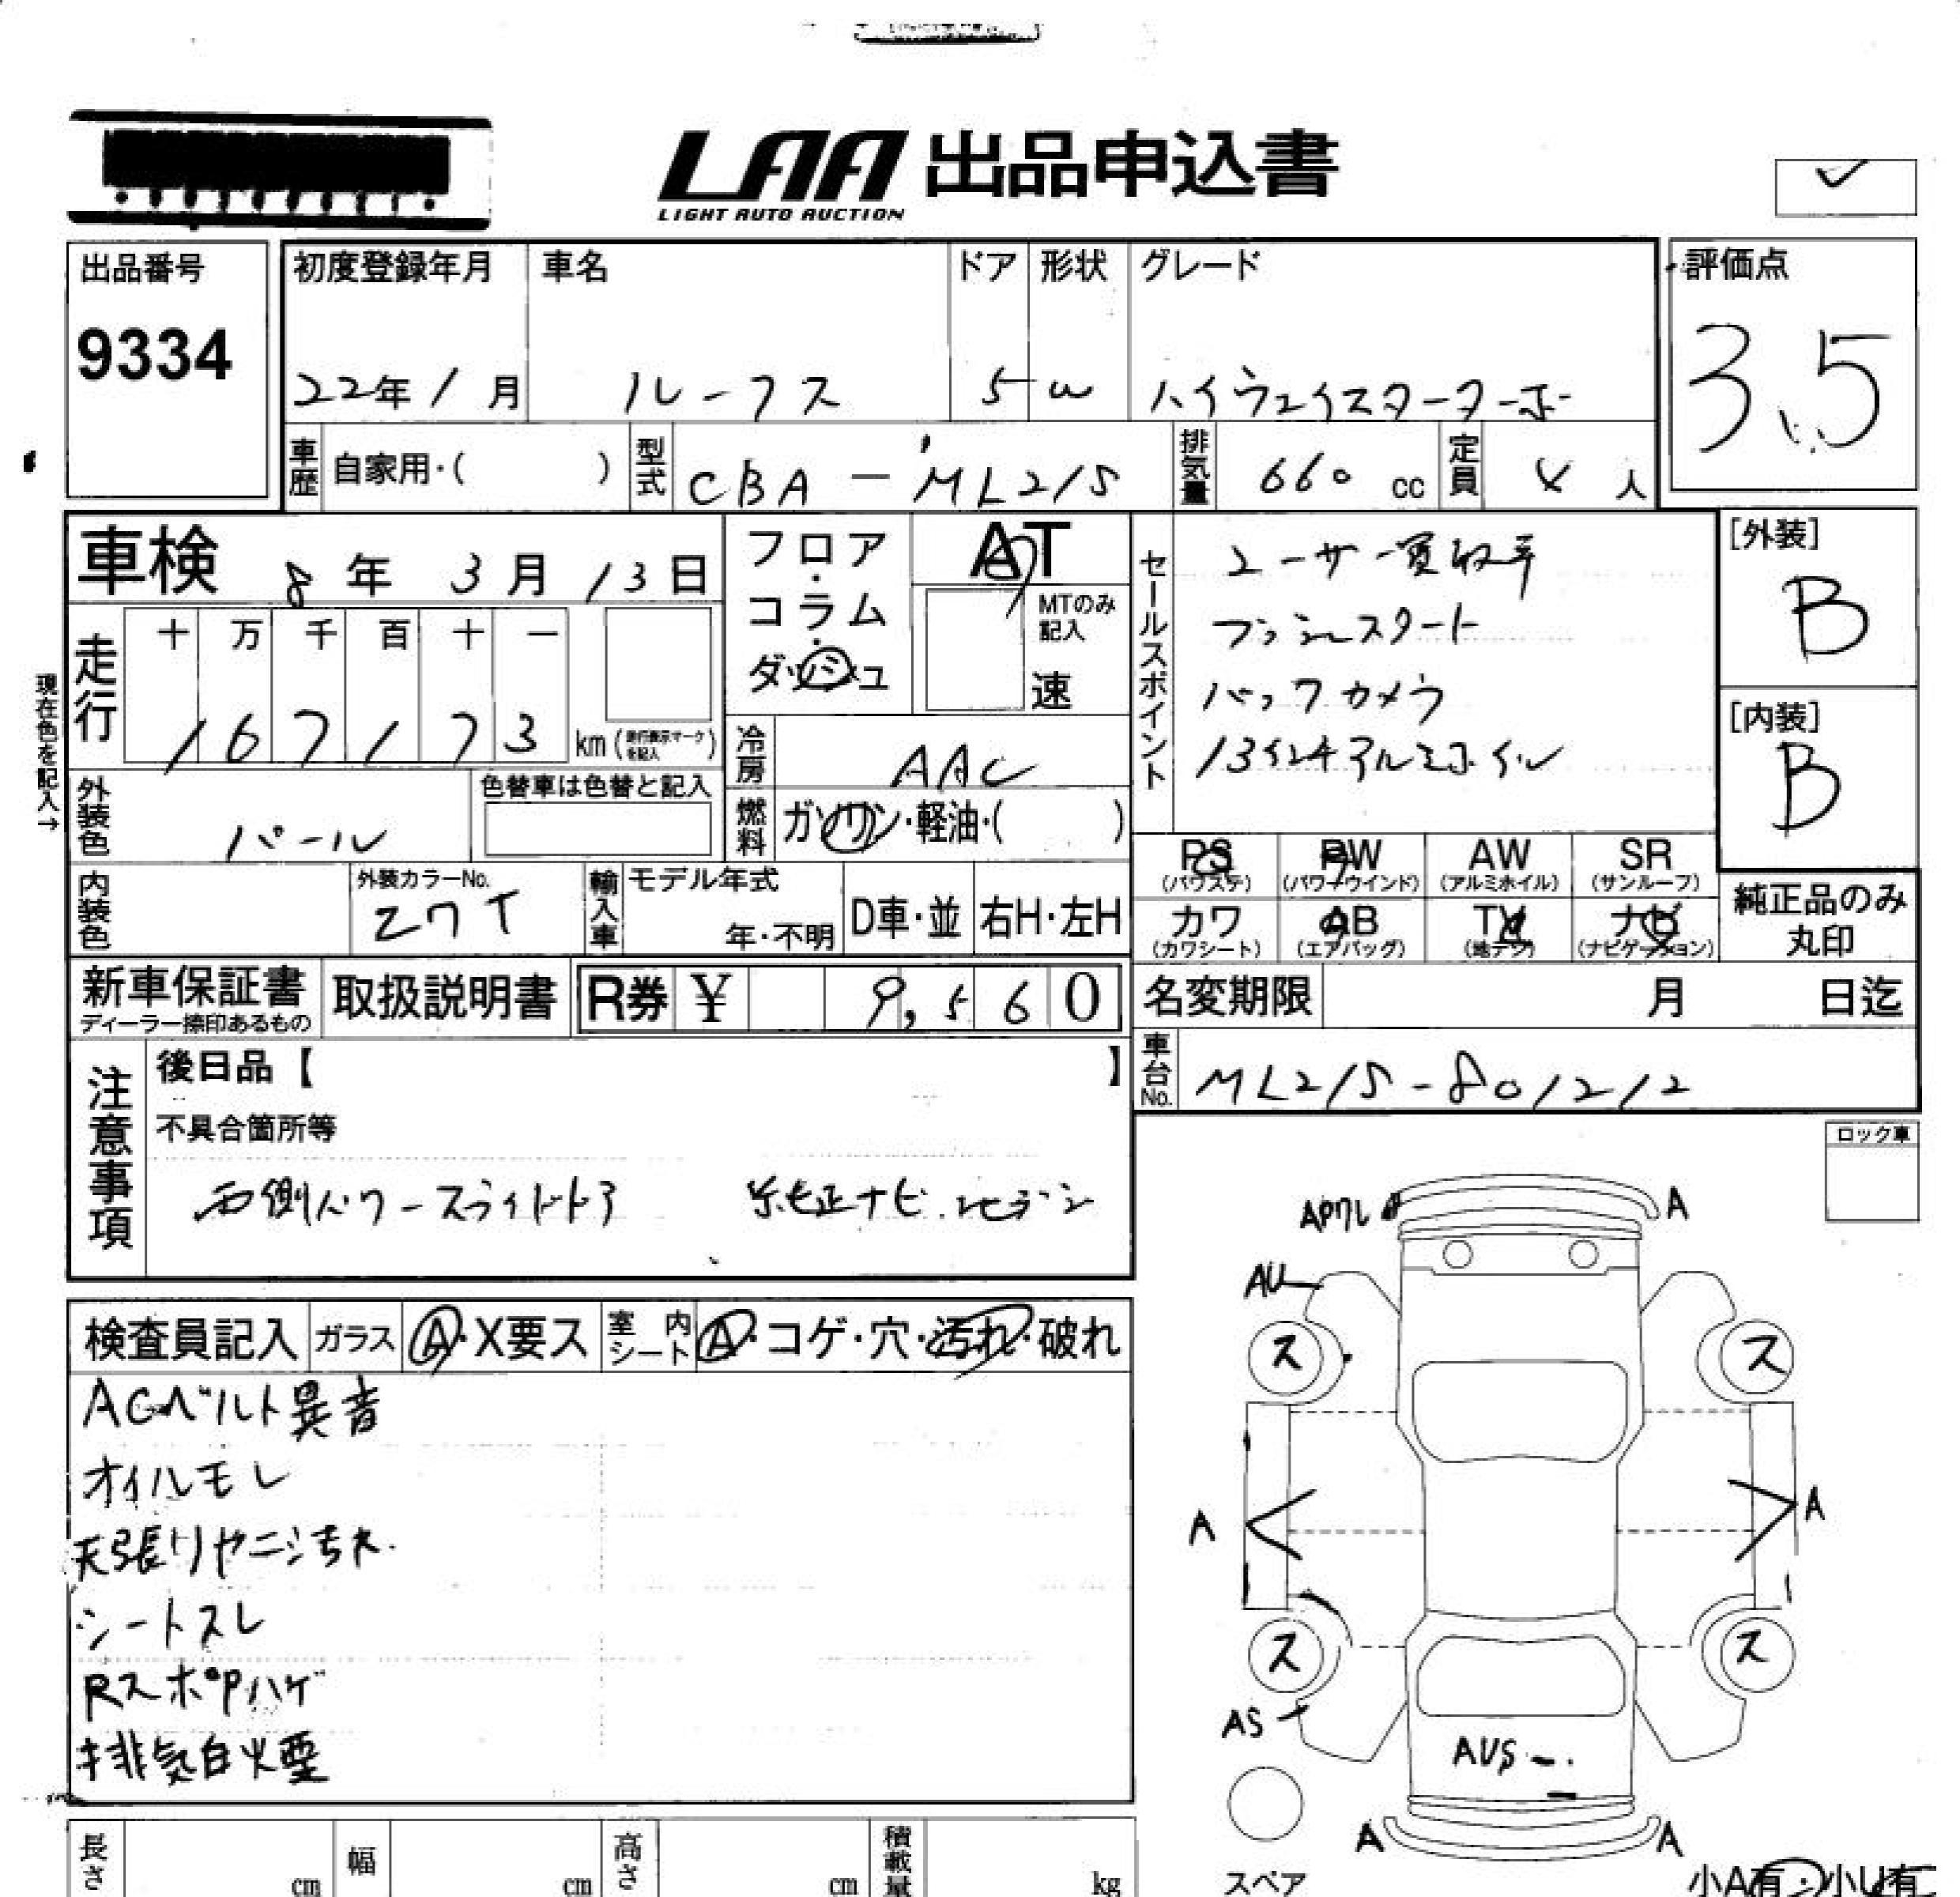 LAA 出品申込書
LIGHT AUTO AUCTION
出品番号
9334
初度登録年月
22年1月
車名
ルークス
ドア
5
形状
W
グレード
ハイウェイスターターボ
評価点
3.5
車歴 自家用・( )
型式 CBA-ML21S
排気量 660 cc
定員 4 人
車検 8年 3月 13日
フロア・コラム・ダッシュ
AT
MTのみ記入
速
走行
十 万 千 百 十 一
1 6 7 1 7 3 km (走行表示マークを記入)
現在色を記入→
冷房 AAC
燃料 ガソリン・軽油・( )
外装色 パール
色替車は色替と記入
内装色
外装カラーNo.
Z7T
輸入車
モデル年式
年・不明
D車・並
右H・左H
セールスポイント
ユーザー買取車
プッシュスタート
バックカメラ
13インチアルミホイル
[外装]
B
[内装]
B
PS (パワステ)
PW (パワーウインド)
AW (アルミホイル)
SR (サンルーフ)
カワ (カワシート)
AB (エアバッグ)
TV (地デジ)
ナビ (ナビゲーション)
純正品のみ丸印
新車保証書
ディーラー捺印あるもの
取扱説明書
R券 ¥ 9,560
名変期限 月 日迄
車台No. ML21S-801212
注意事項
後日品【 】
不具合箇所等
右側パワースライドドア 純正ナビ.
ロック車
検査員記入
ガラス A・X要ス
室内シート A・コゲ・穴・汚れ・破れ
ACベルト異音
オイルモレ
天張りヤニ汚れ
シートスレ
RスポPハゲ
排気白煙
A
AU
ス
ス
A
A
ス
ス
AS
AUS
A
A
スペア
小A有・小U有
長さ cm
幅 cm
高さ cm
積載量 kg